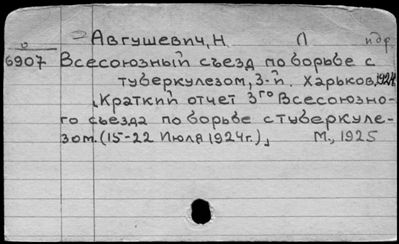 Авгушевич, Н Л и др.
6907 Всесоюзный съезд по борьбе с
туберкулезом, 3-й. Харьков, 1924.
„Краткий отчет 3го Всесоюзно-
го съезда по борьбе с туберкуле-
зом. (15-22 Июля 1924г.)„ М., 1925